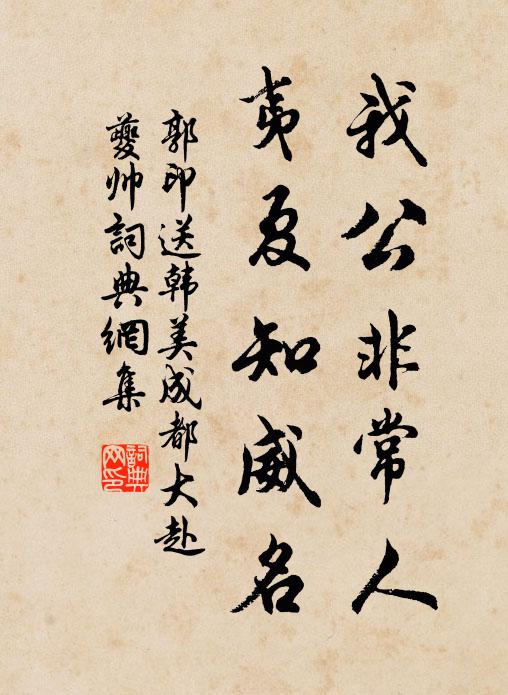 我公非常人
夷夏知威名
郭印送韩美成都大赴
夔帅词典網集
詞典
网印